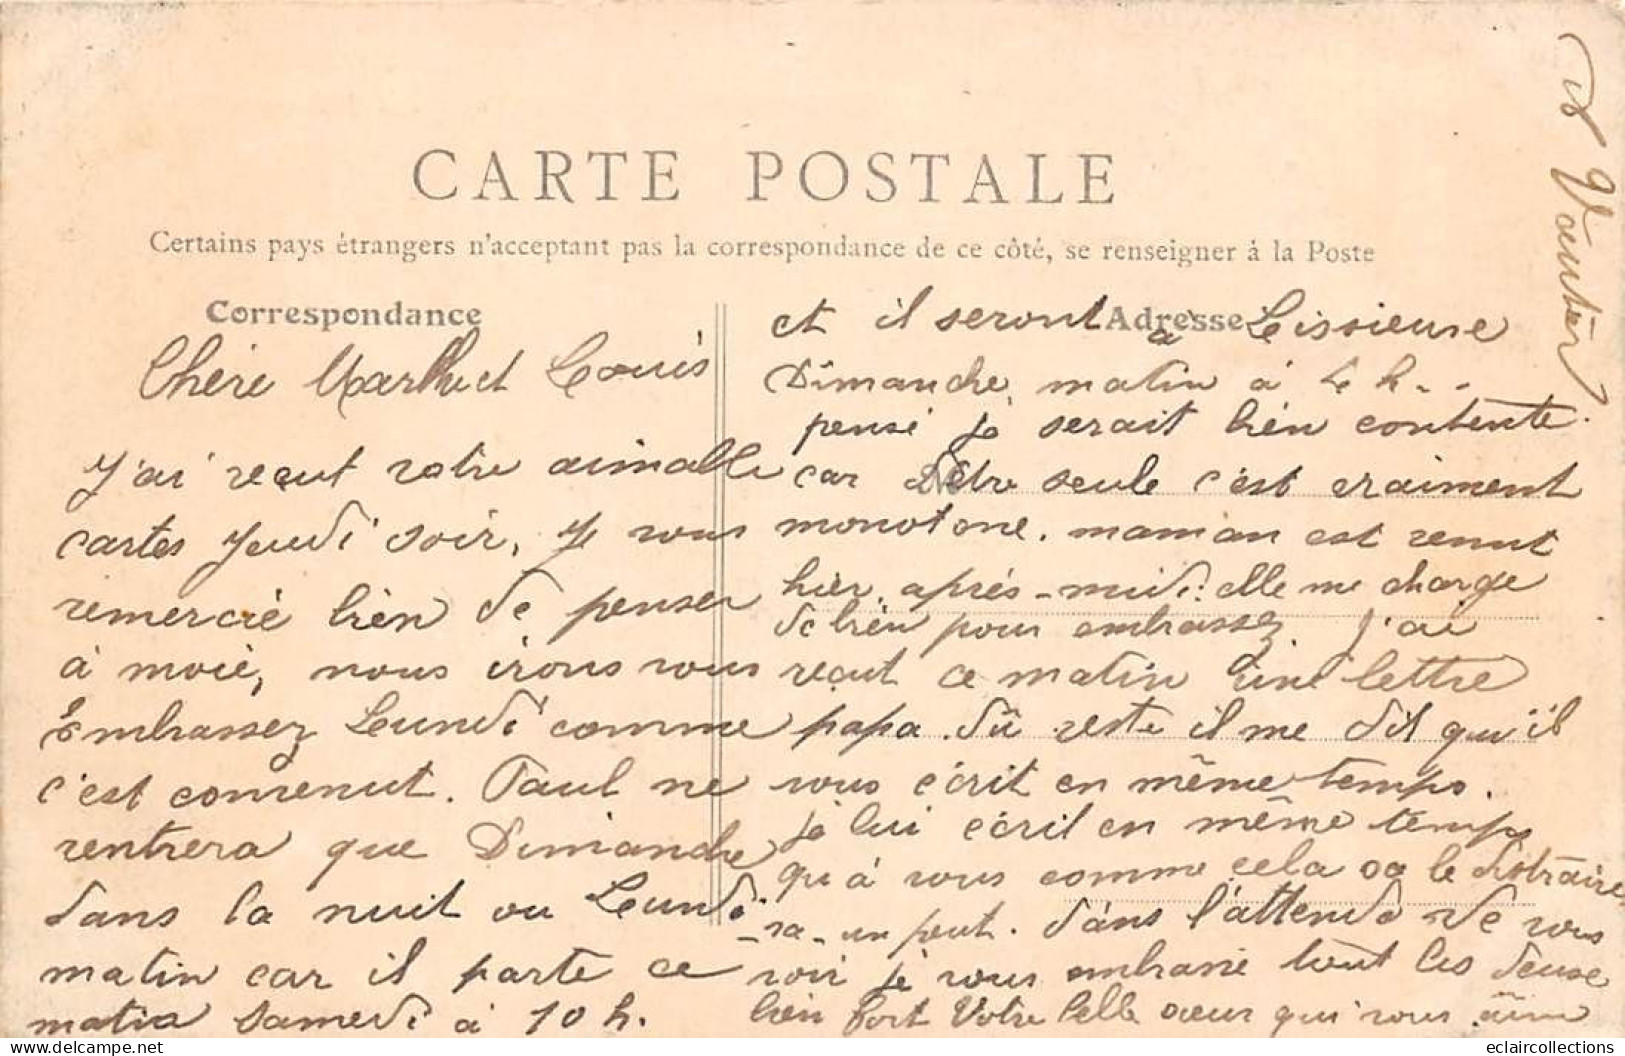 CARTE POSTALE
Certains pays étrangers n'acceptant pas la correspondance de ce côté, se renseigner à la Poste
Correspondance
Chére Marthe et Louis
J'ai reçut votre aimable
cartes Jeudi soir, Je vous
remercié bién de penser
à moié, nous irons vous
Embrassez Lundi comme
c'est convenut. Paul ne
rentrera que Dimanche
dans la nuit ou Lundi
matin car il parte ce
matin Samedi à 10 h.
Adresse
et il seront à Lissieuse
Dimanche matin à 4 h..
pensé je serait bién contente.
car être seule c'est vraiment
monotone. maman est venut
hier après-midi: elle me charge
de bién pour embrassez. J'ai
reçut ce matin une lettre
papa. dû reste il me dit qu'il
vous écrit en même temps.
je lui écril en même temps
qu'à vous comme cela sa le distraire
-ra- un peut. dans l'attende de vous
voir je vous embrasse tout les deuse
bién fort Votre belle sœur qui vous aime